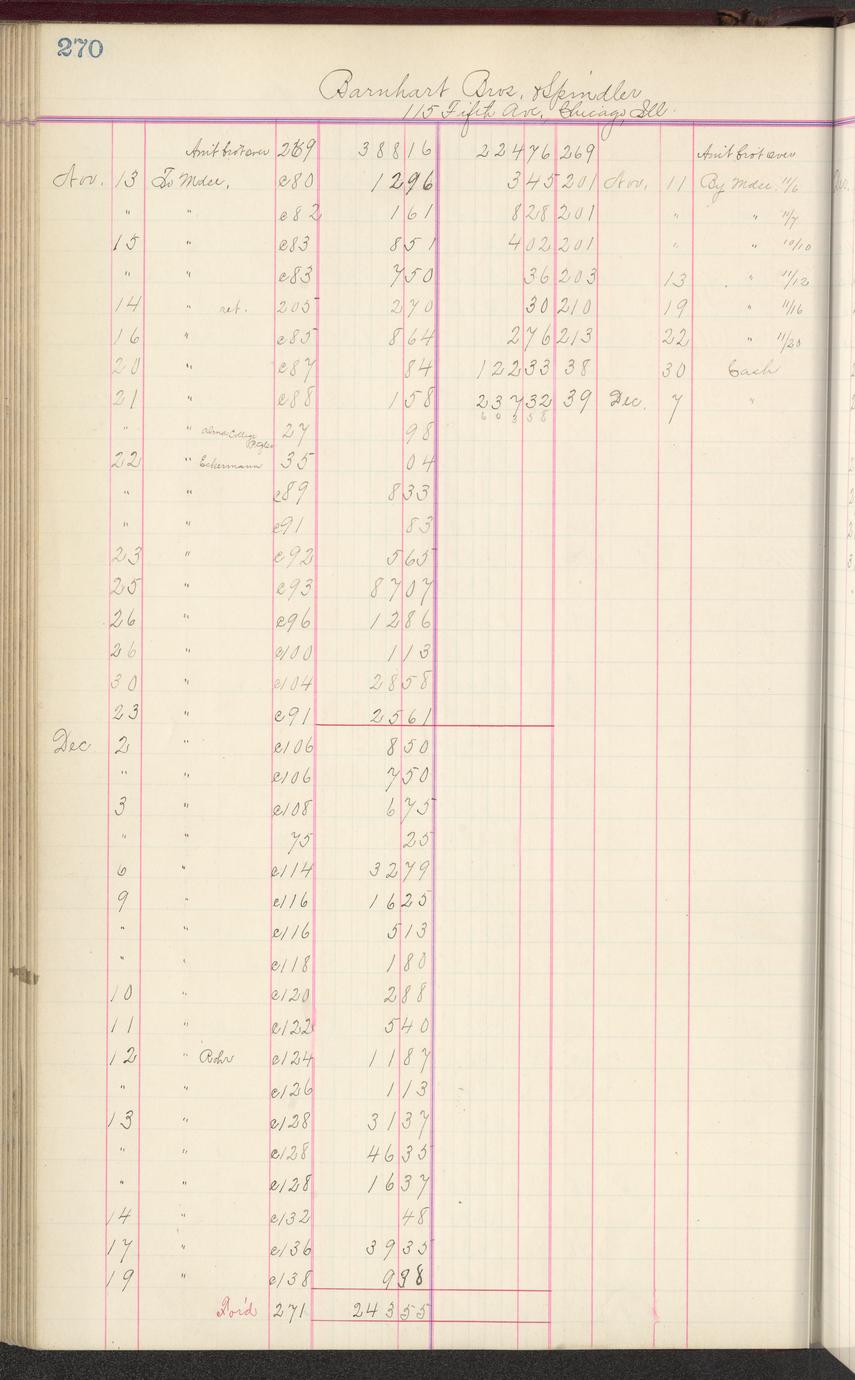 270
Barnhart Bros. & Spindler
115 Fifth Ave, Chicago, Ill.
Am't brot over 269 388 16 224 76 269 Am't brot over
Nov. 13 To Mdse. c80 12 96 3 45 201 Nov. 11 By Mdse. 11/6
" " c82 1 61 8 28 201 " " 11/7
15 " c83 8 51 4 02 201 " " 10/10
" " c83 7 50 36 203 13 " 11/12
14 " ret. 205 2 70 30 210 19 " 11/16
16 " c85 8 64 2 76 213 22 " 11/20
20 " c87 84 122 33 38 30 Cash
21 " c88 1 58 237 32 39 Dec. 7 "
" " 27 98 603 58
22 " Eckermann 35 04
" " c89 8 33
" " c91 83
23 " c92 5 65
25 " c93 87 07
26 " c96 12 86
26 " c100 1 13
30 " c104 28 58
23 " c91 25 61
Dec 2 " c106 8 50
" " c106 7 50
3 " c108 6 75
" " 75 25
6 " c114 32 79
9 " c116 16 25
" " c116 5 13
" " c118 1 80
10 " c120 2 88
11 " c122 5 40
12 " Rohr c124 11 87
" " c126 1 13
13 " c128 31 37
" " c128 46 35
" " c128 16 37
14 " c132 48
17 " c136 39 35
19 " c138 9 38
For'd 271 243 55